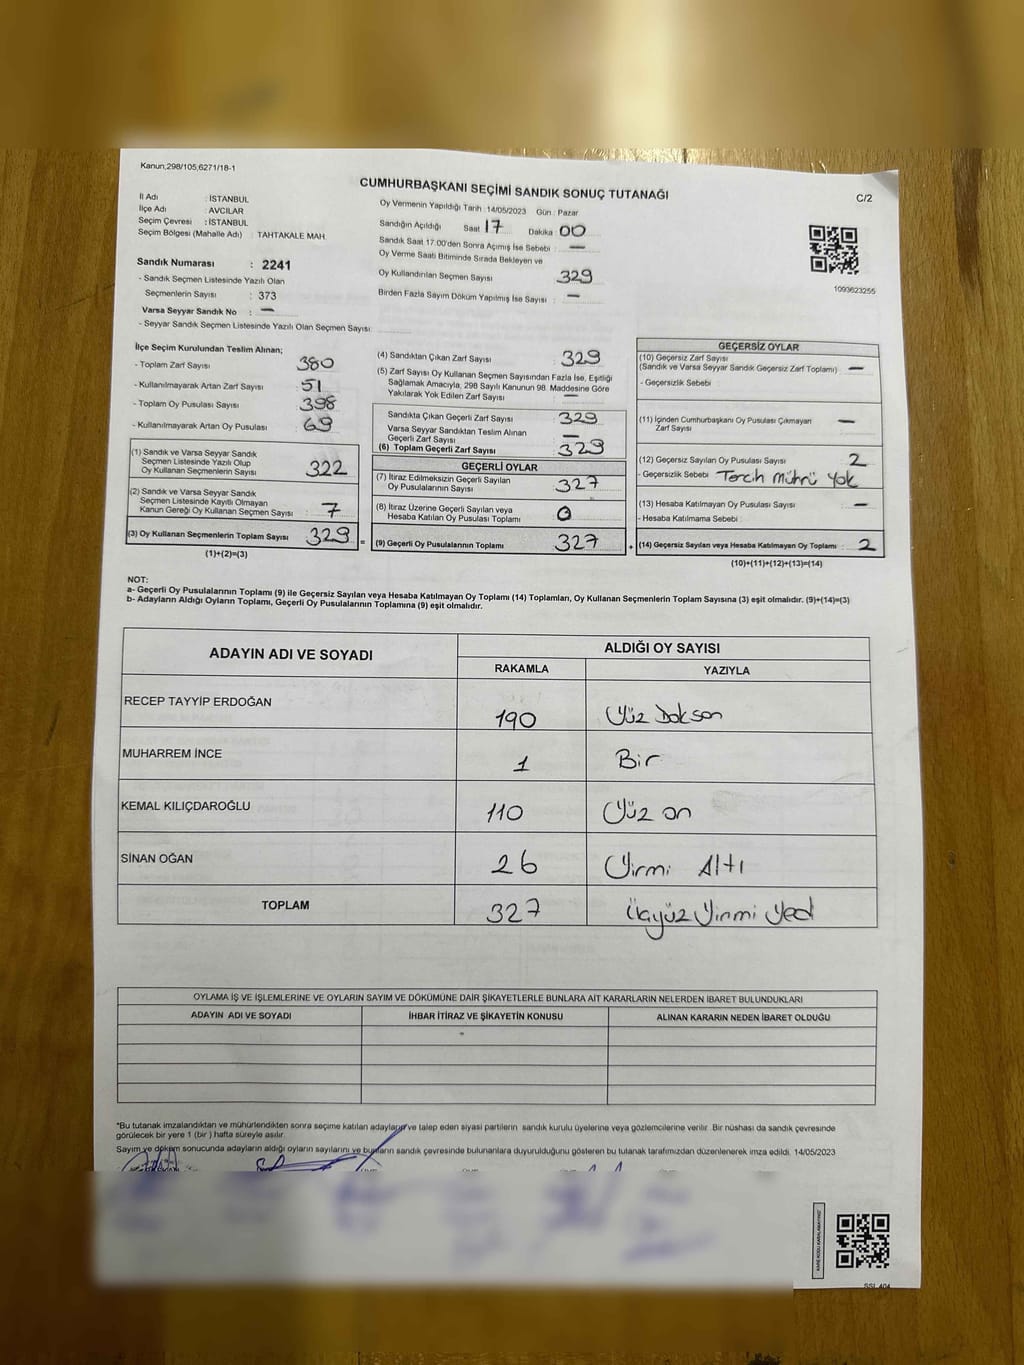 Kanun,298/105,6271/18-1
CUMHURBAŞKANI SEÇİMİ SANDIK SONUÇ TUTANAĞI
C/2
İl Adı : İSTANBUL
İlçe Adı : AVCILAR
Seçim Çevresi : İSTANBUL
Seçim Bölgesi (Mahalle Adı) : TAHTAKALE MAH.
Sandık Numarası : 2241
- Sandık Seçmen Listesinde Yazılı Olan
Seçmenlerin Sayısı : 373
Varsa Seyyar Sandık No : —
- Seyyar Sandık Seçmen Listesinde Yazılı Olan Seçmen Sayısı:
Oy Vermenin Yapıldığı Tarih : 14/05/2023 Gün : Pazar
Sandığın Açıldığı Saat : 17 Dakika : 00
Sandık Saat 17.00'den Sonra Açılmış İse Sebebi : —
Oy Verme Saati Bitiminde Sırada Bekleyen ve
Oy Kullandırılan Seçmen Sayısı : 329
Birden Fazla Sayım Döküm Yapılmış İse Sayısı : —
1093623255
İlçe Seçim Kurulundan Teslim Alınan;
- Toplam Zarf Sayısı : 380
- Kullanılmayarak Artan Zarf Sayısı : 51
- Toplam Oy Pusulası Sayısı : 398
- Kullanılmayarak Artan Oy Pusulası : 69
(1) Sandık ve Varsa Seyyar Sandık
Seçmen Listesinde Yazılı Olup
Oy Kullanan Seçmenlerin Sayısı : 322
(2) Sandık ve Varsa Seyyar Sandık
Seçmen Listesinde Kayıtlı Olmayan
Kanun Gereği Oy Kullanan Seçmen Sayısı : 7
(3) Oy Kullanan Seçmenlerin Toplam Sayısı : 329
(1)+(2)=(3)
=
(4) Sandıktan Çıkan Zarf Sayısı : 329
(5) Zarf Sayısı Oy Kullanan Seçmen Sayısından Fazla İse, Eşitliği
Sağlamak Amacıyla, 298 Sayılı Kanunun 98. Maddesine Göre
Yakılarak Yok Edilen Zarf Sayısı : —
Sandıkta Çıkan Geçerli Zarf Sayısı : 329
Varsa Seyyar Sandıktan Teslim Alınan
Geçerli Zarf Sayısı : —
(6) Toplam Geçerli Zarf Sayısı : 329
GEÇERLİ OYLAR
(7) İtiraz Edilmeksizin Geçerli Sayılan
Oy Pusulalarının Sayısı : 327
(8) İtiraz Üzerine Geçerli Sayılan veya
Hesaba Katılan Oy Pusulası Toplamı : 0
(9) Geçerli Oy Pusulalarının Toplamı : 327
+
GEÇERSİZ OYLAR
(10) Geçersiz Zarf Sayısı
(Sandık ve Varsa Seyyar Sandık Geçersiz Zarf Toplamı) : —
- Geçersizlik Sebebi :
(11) İçinden Cumhurbaşkanı Oy Pusulası Çıkmayan
Zarf Sayısı : —
(12) Geçersiz Sayılan Oy Pusulası Sayısı : 2
- Geçersizlik Sebebi : Tercih mührü yok
(13) Hesaba Katılmayan Oy Pusulası Sayısı : —
- Hesaba Katılmama Sebebi :
(14) Geçersiz Sayılan veya Hesaba Katılmayan Oy Toplamı : 2
(10)+(11)+(12)+(13)=(14)
NOT:
a- Geçerli Oy Pusulalarının Toplamı (9) ile Geçersiz Sayılan veya Hesaba Katılmayan Oy Toplamı (14) Toplamları, Oy Kullanan Seçmenlerin Toplam Sayısına (3) eşit olmalıdır. (9)+(14)=(3)
b- Adayların Aldığı Oyların Toplamı, Geçerli Oy Pusulalarının Toplamına (9) eşit olmalıdır.
ADAYIN ADI VE SOYADI ALDIĞI OY SAYISI
RAKAMLA YAZIYLA
RECEP TAYYİP ERDOĞAN 190 Yüz Doksan
MUHARREM İNCE 1 Bir
KEMAL KILIÇDAROĞLU 110 Yüz on
SİNAN OĞAN 26 Yirmi Altı
TOPLAM 327 Üçyüz Yirmi Yedi
OYLAMA İŞ VE İŞLEMLERİNE VE OYLARIN SAYIM VE DÖKÜMÜNE DAİR ŞİKAYETLERLE BUNLARA AİT KARARLARIN NELERDEN İBARET BULUNDUKLARI
ADAYIN ADI VE SOYADI İHBAR İTİRAZ VE ŞİKAYETİN KONUSU ALINAN KARARIN NEDEN İBARET OLDUĞU
*Bu tutanak imzalandıktan ve mühürlendikten sonra seçime katılan adaylara ve talep eden siyasi partilerin sandık kurulu üyelerine veya gözlemcilerine verilir. Bir nüshası da sandık çevresinde
görülecek bir yere 1 (bir ) hafta süreyle asılır.
Sayım ve döküm sonucunda adayların aldığı oyların sayılarını ve bunların sandık çevresinde bulunanlara duyurulduğunu gösteren bu tutanak tarafımızdan düzenlenerek imza edildi. 14/05/2023